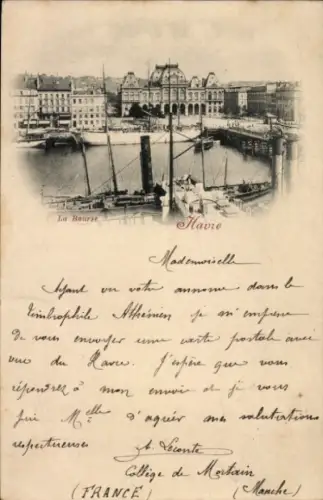 La Bourse
Havre
Mademoiselle
Ayant vu votre annonce dans le
Timbrophile Athénien je m'empresse
de vous envoyer une carte postale avec
vue du Havre. J'espère que vous
répondrez à mon envoi et je vous
prie Melle d'agréer mes salutations
respectueuses
A. Leconte
Collège de Mortain
(FRANCE) (Manche)